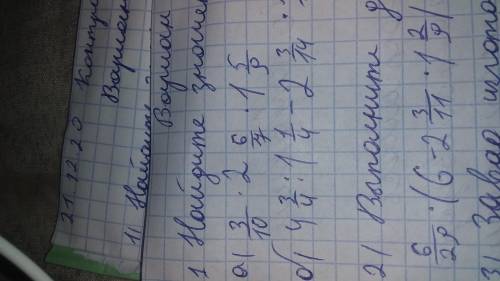 21.12.20 Контр
Вариан
1) Найдите
Вариан
1 Найдите значен
а) 3/10 · 2 6/7 · 1 5/9
б) 4 3/4 : 1 1/4 - 2 3/14 ·
2) Выполните д
6/29 · (6 - 2 3/11 · 1 2/9)
3) Завод изготов